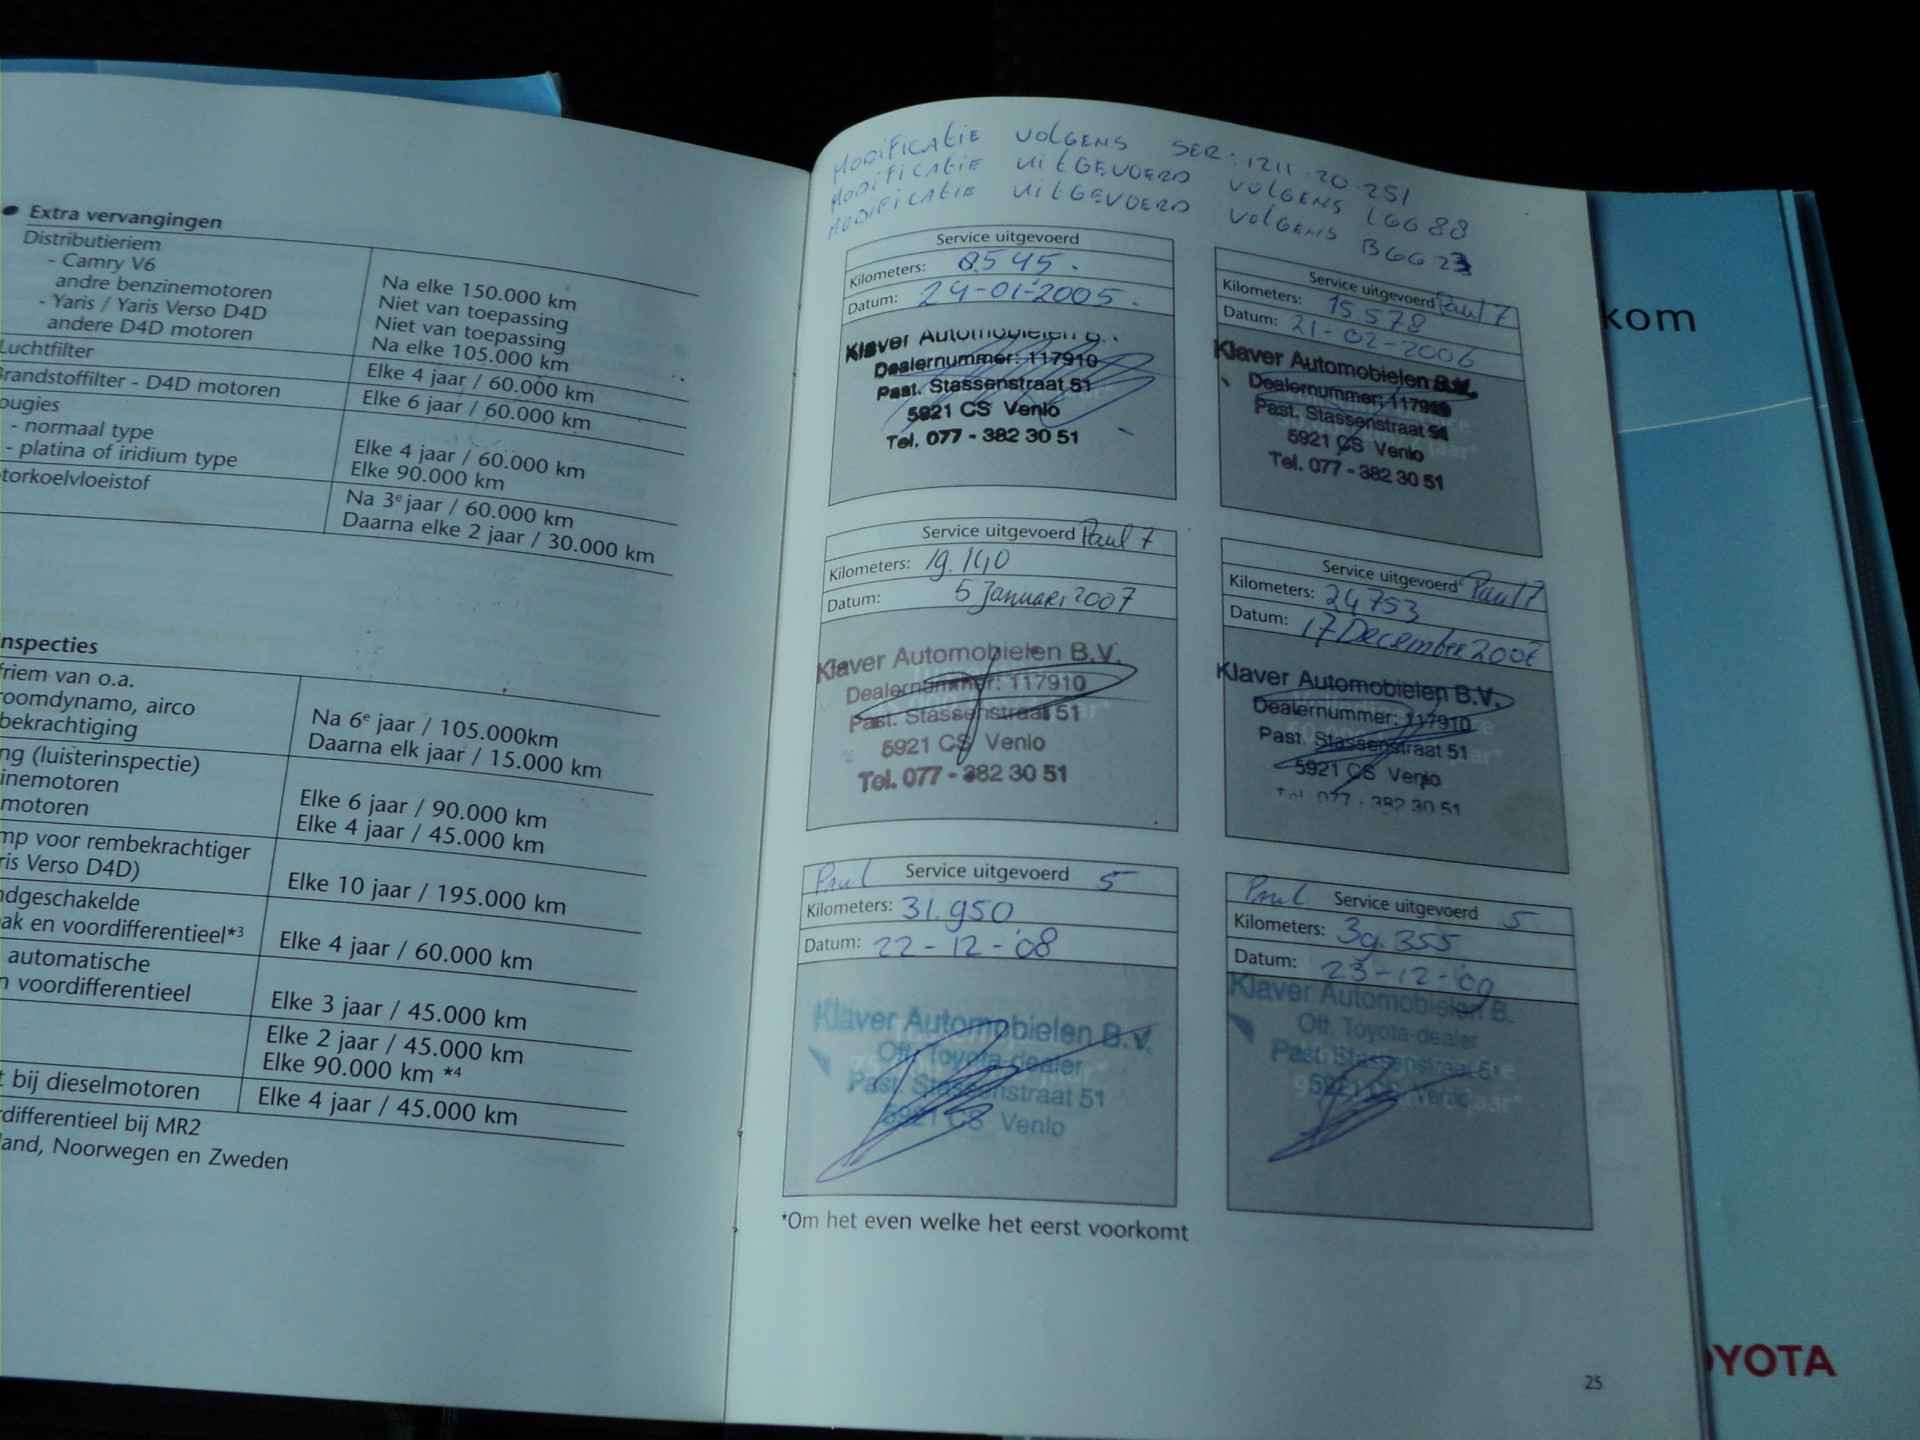 Extra vervangingen
Distributieriem
- Camry V6
andre benzinemotoren
- Yaris / Yaris Verso D4D
andere D4D motoren
Na elke 150.000 km
Niet van toepassing
Niet van toepassing
Na elke 105.000 km
Luchtfilter
Elke 4 jaar / 60.000 km
Brandstoffilter - D4D motoren
Elke 6 jaar / 60.000 km
ougies
- normaal type
- platina of iridium type
Elke 4 jaar / 60.000 km
Elke 90.000 km
torkoelvloeistof
Na 3e jaar / 60.000 km
Daarna elke 2 jaar / 30.000 km
nspecties
friem van o.a.
roomdynamo, airco
bekrachtiging
Na 6e jaar / 105.000km
Daarna elk jaar / 15.000 km
ng (luisterinspectie)
inemotoren
motoren
Elke 6 jaar / 90.000 km
Elke 4 jaar / 45.000 km
mp voor rembekrachtiger
ris Verso D4D)
Elke 10 jaar / 195.000 km
ndgeschakelde
ak en voordifferentieel*3
Elke 4 jaar / 60.000 km
automatische
n voordifferentieel
Elke 3 jaar / 45.000 km
Elke 2 jaar / 45.000 km
Elke 90.000 km *4
t bij dieselmotoren
Elke 4 jaar / 45.000 km
rdifferentieel bij MR2
land, Noorwegen en Zweden
MODIFICATIE VOLGENS SER: 1211.20.251
MODIFICATIE UITGEVOERD VOLGENS LGG88
MODIFICATIE UITGEVOERD VOLGENS BGG23
Service uitgevoerd
Kilometers: 8545.
Datum: 24-01-2005.
Klaver Automobielen B.V.
Dealernummer: 117910
Past. Stassenstraat 51
5921 CS Venlo
Tel. 077 - 382 30 51
Service uitgevoerd Paul 7
Kilometers: 15.578
Datum: 21-02-2006
Klaver Automobielen B.V.
Dealernummer: 117910
Past. Stassenstraat 51
5921 CS Venlo
Tel. 077 - 382 30 51
Service uitgevoerd Paul 7
Kilometers: 19.140
Datum: 5 Januari 2007
Klaver Automobielen B.V.
Dealernummer: 117910
Past. Stassenstraat 51
5921 CS Venlo
Tel. 077 - 382 30 51
Service uitgevoerd Paul 7
Kilometers: 24753
Datum: 17 December
Klaver Automobielen B.V.
Dealernummer: 117910
Past. Stassenstraat 51
5921 CS Venlo
Tel. 077 - 382 30 51
Paul Service uitgevoerd 5
Kilometers: 31.950
Datum: 22-12-'08
Klaver Automobielen B.V.
Off. Toyota-dealer
Past. Stassenstraat 51
5921 CS Venlo
Paul Service uitgevoerd 5
Kilometers: 39.355
Datum: 23-12-'09
Klaver Automobielen B.
Off. Toyota-dealer
Past. Stassenstraat 51
5921 CS Venlo
*Om het even welke het eerst voorkomt
25
kom
OYOTA